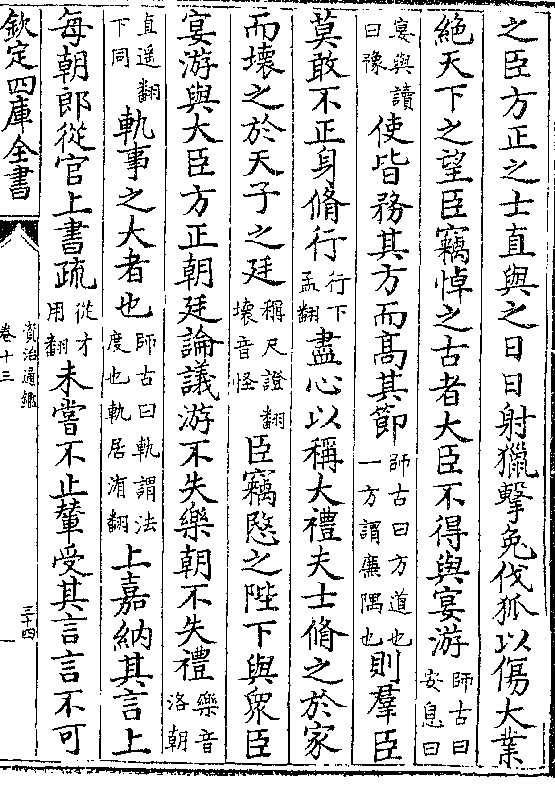 之臣方正之士直與之日日射獵擊兔伐狐以傷大業
絶天下之望臣竊悼之古者大臣不得與宴游師古曰安息曰
宴與讀曰豫使皆務其方而髙其節師古曰方道也一方謂廉隅也則羣臣
莫敢不正身脩行行下孟翻盡心以稱大禮夫士脩之於家
而壞之於天子之廷稱尺證翻壞音怪臣竊愍之陛下與衆臣
宴游與大臣方正朝廷論議游不失樂朝不失禮樂音洛朝
直遥翻下同軌事之大者也師古曰軌謂法度也軌居洧翻上嘉納其言上
每朝郎從官上書疏從才用翻未嘗不止輦受其言言不可
欽定四庫全書
資治通鑑
卷十三
三十四